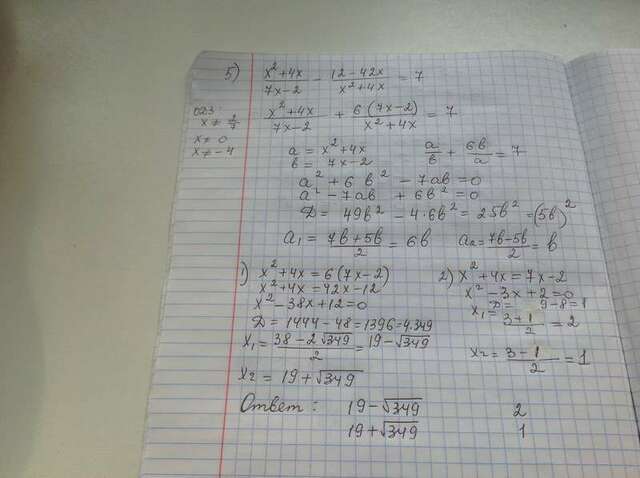 5) (x² + 4x)/(7x - 2) - (12 - 42x)/(x² + 4x) = 7
ОДЗ: (x² + 4x)/(7x - 2) + 6(7x - 2)/(x² + 4x) = 7
x ≠ 2/7
x ≠ 0
x ≠ -4
a = x² + 4x a/b + 6b/a = 7
b = 7x - 2
a² + 6b² - 7ab = 0
a² - 7ab + 6b² = 0
D = 49b² - 4·6b² = 25b² = (5b)²
a₁ = (7b + 5b)/2 = 6b a₂ = (7b - 5b)/2 = b
1) x² + 4x = 6(7x - 2)
x² + 4x = 42x - 12
x² - 38x + 12 = 0
D = 1444 - 48 = 1396 = 4·349
x₁ = (38 - 2√349)/2 = 19 - √349
x₂ = 19 + √349
2) x² + 4x = 7x - 2
x² - 3x + 2 = 0
D = 9 - 8 = 1
x₁ = (3 + 1)/2 = 2
x₂ = (3 - 1)/2 = 1
Ответ: 19 - √349 2
19 + √349 1